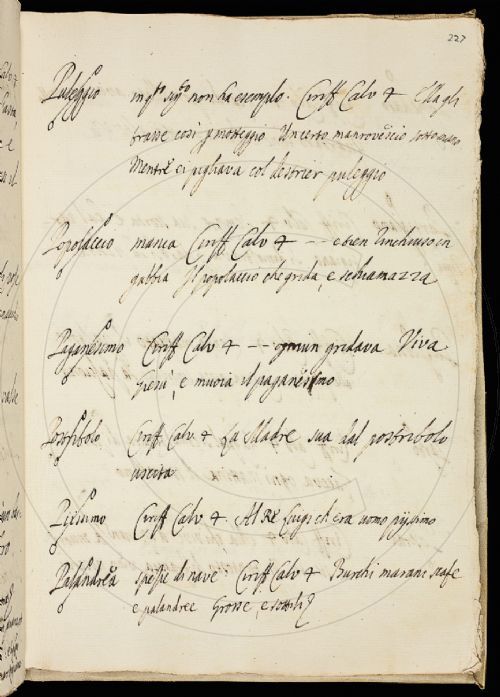 227
Puleggio in q.to sig.to non ha esempio. Ciriff Calv 4 Ella gli
trasse così p motteggio Un certo manrovescio sotto mano
Mentre ei pigliava col destrier puleggio
Popolaccio manca Ciriff Calv 4 -- e ben rinchiuso in
gabbia Il popolaccio che grida, e schiamazza
Paganesimo Ciriff Calv 4 -- ognun gridava Viva
giesù, e muoia il paganesmo
Postribolo Ciriff Calv. 4 La Madre sua dal postribolo
uscita
Pijssimo Ciriff Calv 4 Al Rè Luigi ch era uomo pijssimo
Palandrea spezie di nave. Ciriff Calv 4 Burchi marani scafe
e palandree Grosse, e sottili